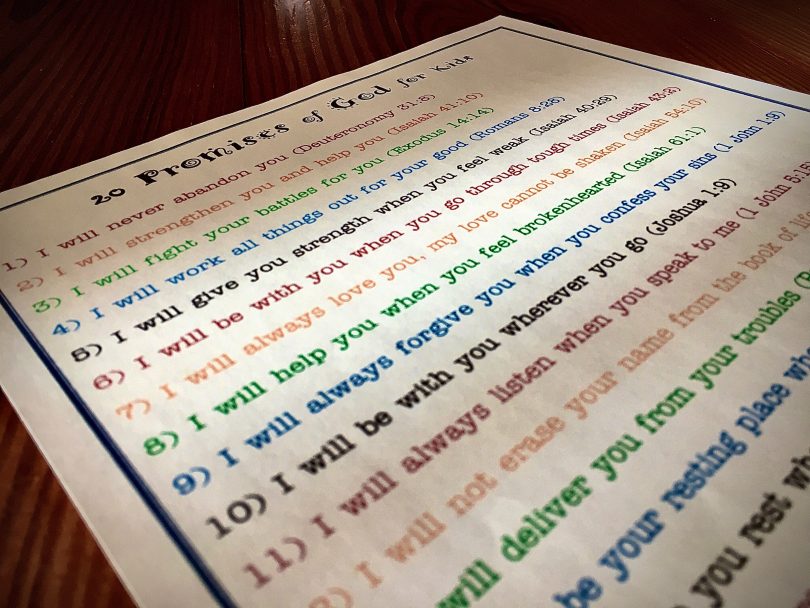 20 Promises of God for Kids
1) I will never abandon you (Deuteronomy 31:8)
2) I will strengthen you and help you (Isaiah 41:10)
3) I will fight your battles for you (Exodus 14:14)
4) I will work all things out for your good (Romans 8:28)
5) I will give you strength when you feel weak (Isaiah 40:29)
6) I will be with you when you go through tough times (Isaiah 43:2)
7) I will always love you, my love cannot be shaken (Isaiah 54:10)
8) I will help you when you feel brokenhearted (Isaiah 61:1)
9) I will always forgive you when you confess your sins (1 John 1:9)
10) I will be with you wherever you go (Joshua 1:9)
11) I will always listen when you speak to me (1 John 5:15
I will not erase your name from the book of
will deliver you from your troubles
be your resting place
you rest